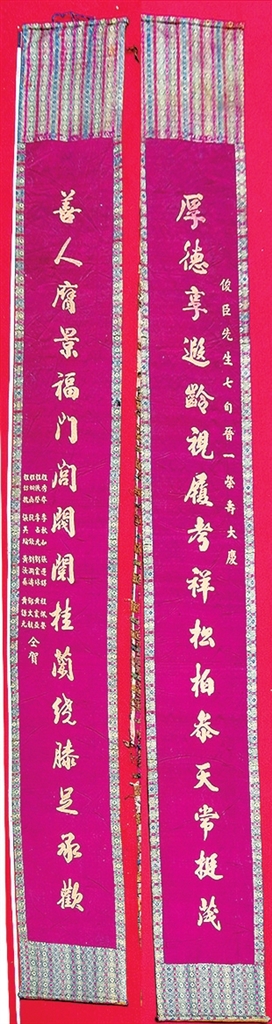 俊臣先生七旬晉一榮壽大慶
厚德享遐齡視履考祥松柏參天常挺茂
善人膺景福門閭閥閱桂蘭繞膝足承歡
仝賀